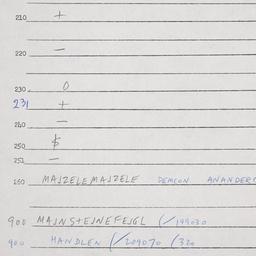 210 +
220 —
230 0
231 +
240 —
250 $
251 —
260 MAJZELEMAJZELE DEMCON ANANDERS
900 MAJNS+EJNEFEJGL (/199030
900 HANDLEN (/209070 /320